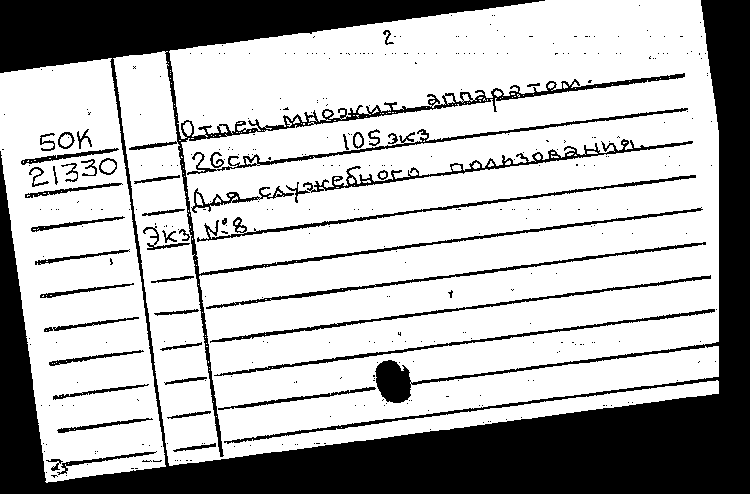 2
Отпеч. множит. аппаратом.
50К
26см. 105 экз
21330
Для служебного пользования.
Экз №8.